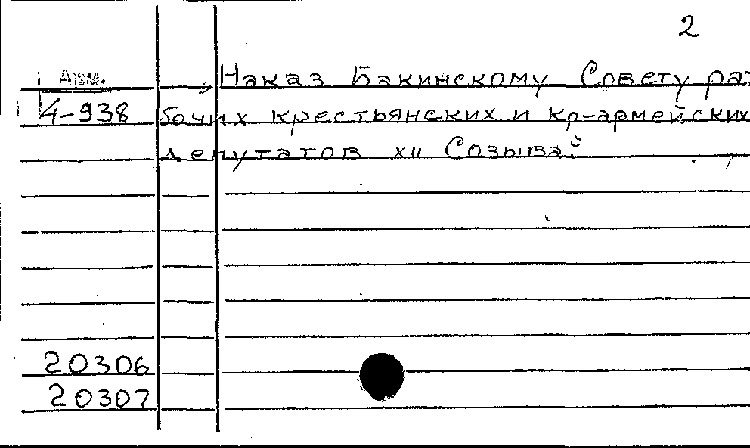 2
Арм.
Наказ Бакинскому Совету ра-
4-938 бочих крестьянских и кр-армейских
депутатов XII Созыва.
20306
20307